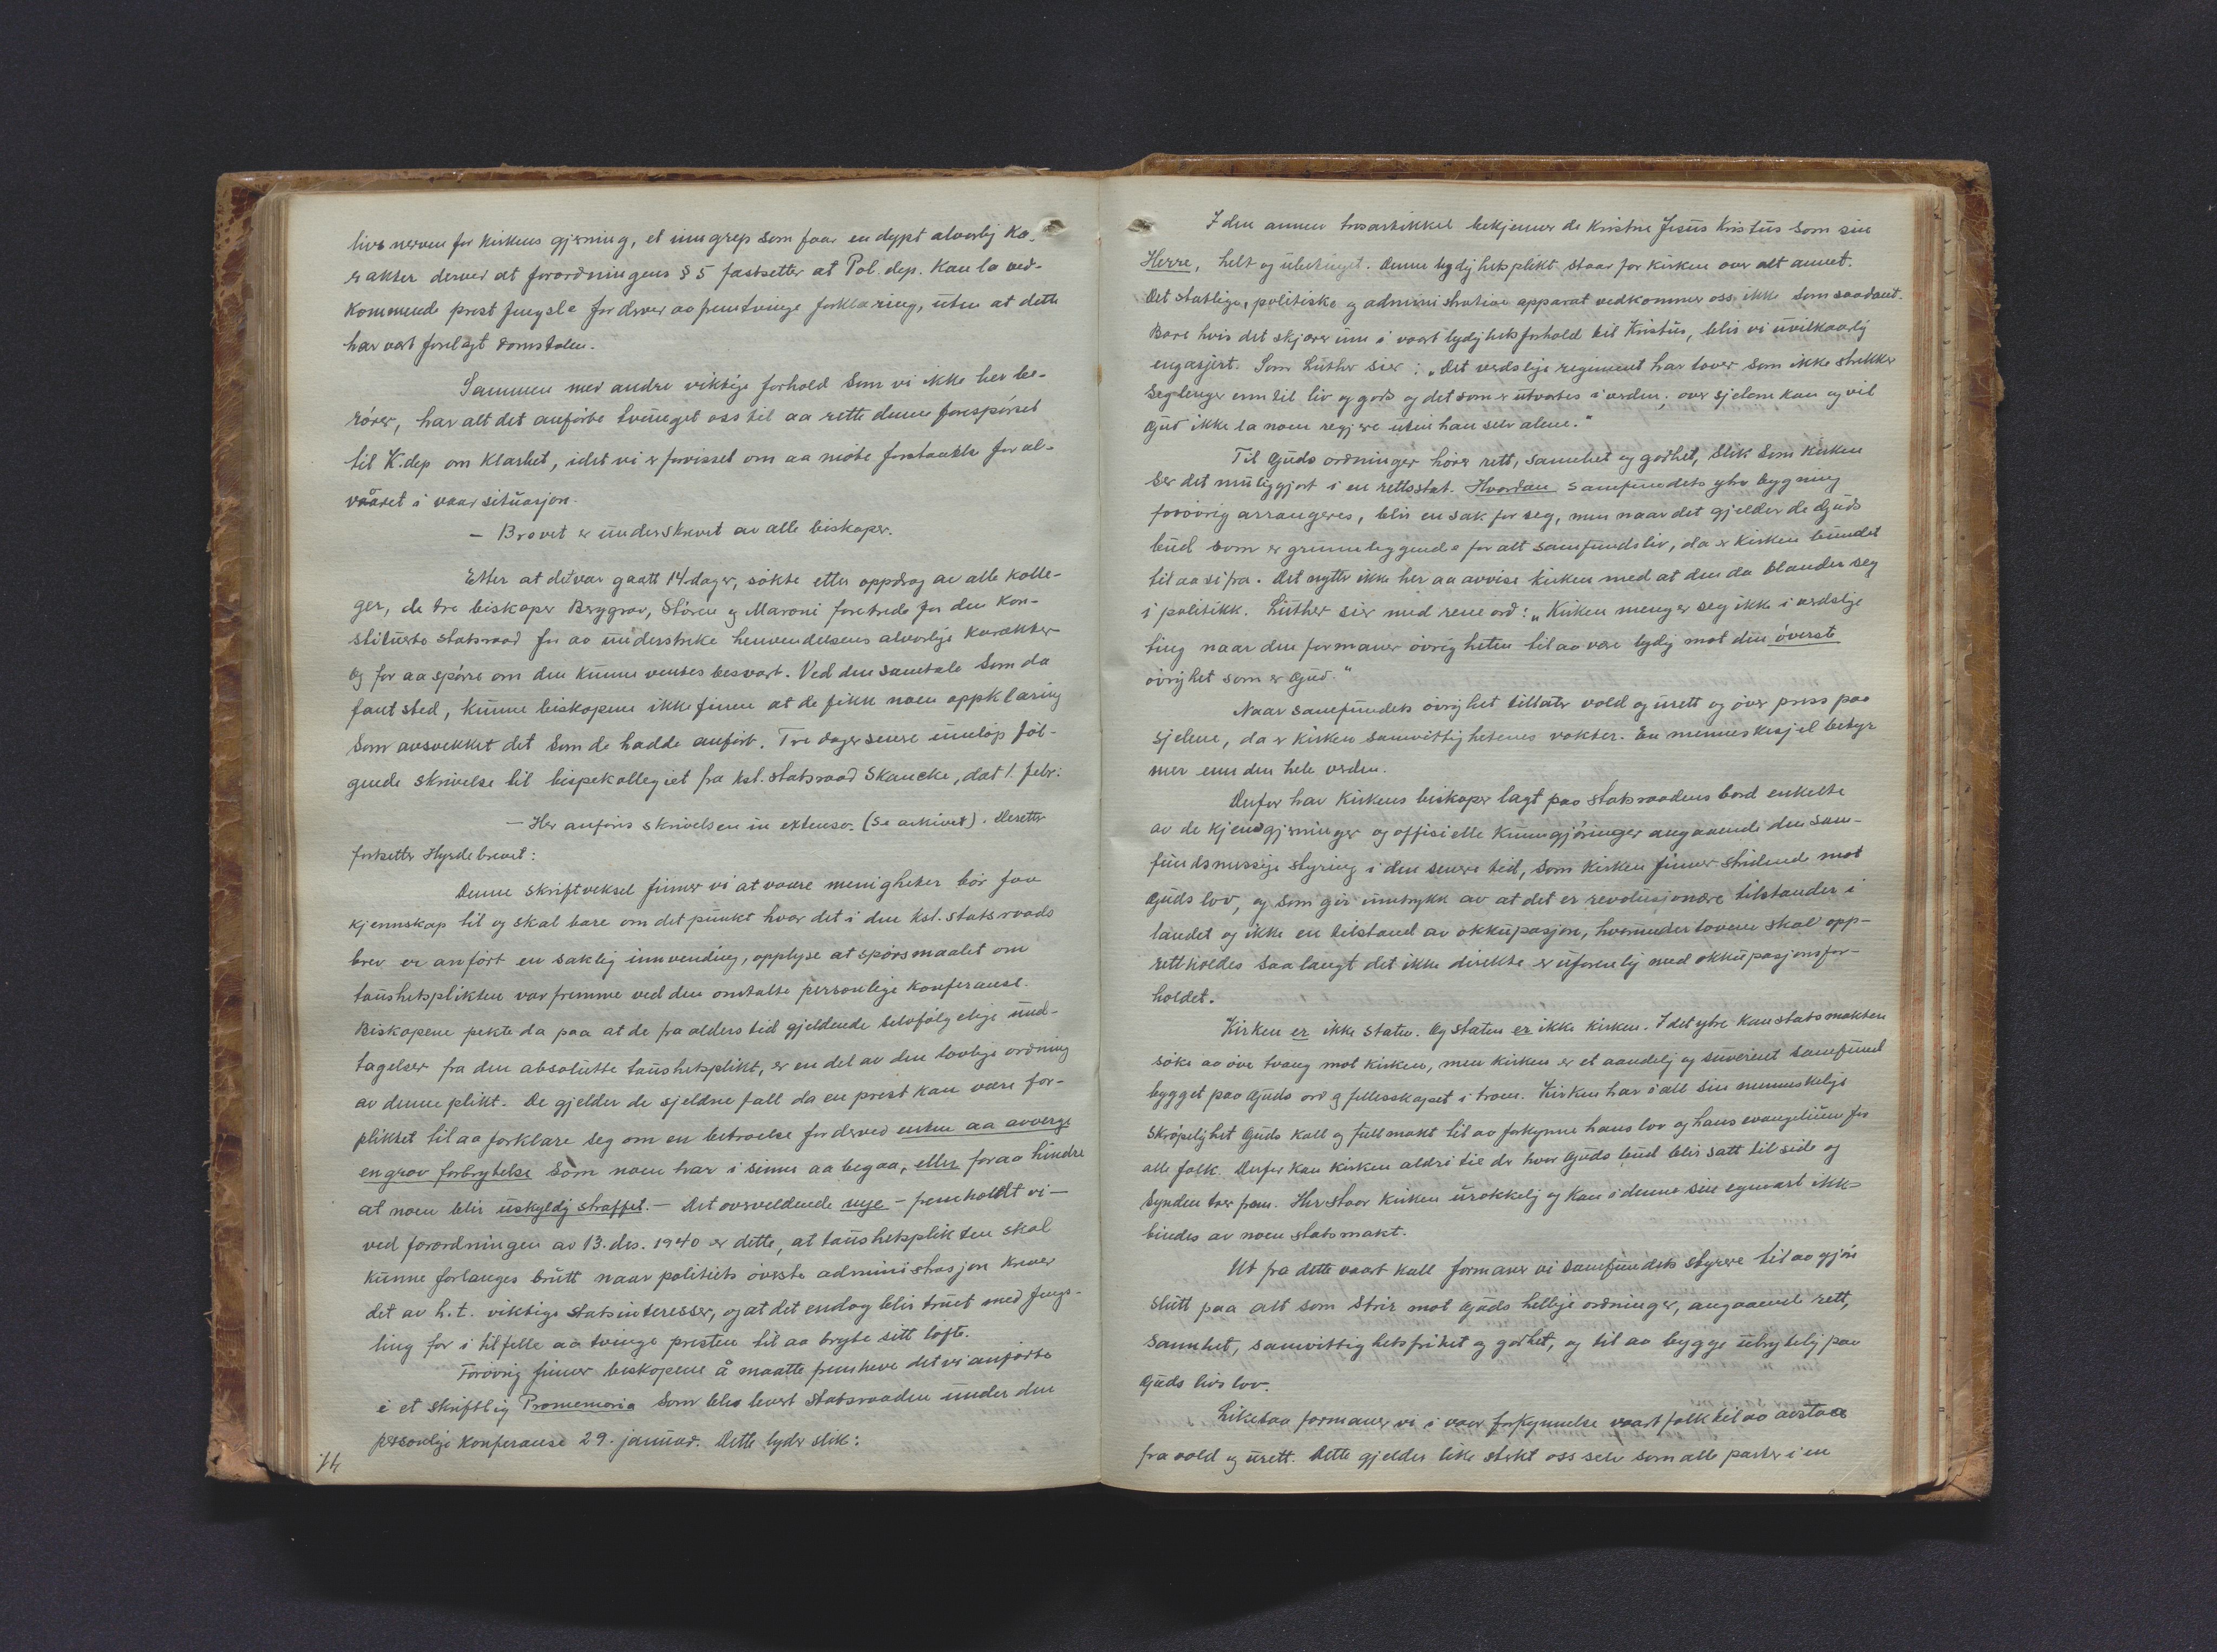 livsnerven for kirkens gjerning, et inngrep som faar en dypt alvorlig ka-
rakter derved at forordningens § 5 fastsetter at Pol.dep. kan la ved-
kommende prest fengsle for derved aa fremtvinge forklaring, uten at dette
har vært forelagt domstolen.
Sammen med andre viktige forhold som vi ikke her be-
rörer, har alt det anförte tvunget oss til aa rette denne forespörsel
til K.dep om klarhet, idet vi er forvisset om aa möte forstaaelse for al-
våret i vaar situasjon.
- Brevet er underskrevet av alle biskoper.
Etter at det var gaatt 14 dager, sökte etter oppdrag av alle kolle-
ger, de tre biskoper Berggrav, Stören og Maroni foretrede for den kon-
stituerte statsraad for aa understreke henvendelsens alvorlige karakter
og for aa spörre om den kunne ventes besvart. Ved den samtale som da
fant sted, kunne biskopene ikke finne at de fikk noen oppklaring
som avsvekket det som de hadde anfört. Tre dager senere innlöp föl-
gende skrivelse til bispekollegiet fra kst. statsraad Skancke, dat 1. febr:
- Her anföres skrivelsen in extenso. (Se arkivet). Deretter
fortsetter Hyrdebrevet:
Denne skriftveksel finner vi at vaare menigheter bör faa
kjennskap til og skal bare om det punkt hvor det i den kst. statsraads
brev er anfört en saklig innvending, opplyse at spörsmaalet om
taushetsplikten var fremme ved den omtalte personlige konferanse.
Biskopene pekte da paa at de fra alders tid gjeldende selvfölgelige und-
tagelser fra den absolutte taushetsplikt, er en del av den lovlige ordning
av denne plikt. De gjelder de sjeldne fall da en prest kan være for-
pliktet til aa forklare seg om en betroelse for derved enten aa avverge
en grov forbrytelse som noen har i sinne aa begaa, eller for aa hindre
at noen blir uskyldig straffet. - Det overveldende nye - fremholdt vi -
ved forordningen av 13. des. 1940 er dette, at taushetsplikten skal
kunne forlanges brutt naar politiets överste administrasjon krever
det av h.t. viktige statsinteresser, og at det endog blir truet med fengs-
ling for i tilfelle aa tvinge presten til aa bryte sitt löfte.
Forövrig finner biskopene å maatte fremheve det vi anförte
i et skriftlig Promemoria som blev levert statsraaden under den
personlige konferanse 29. januar. Dette lyder slik:
I den annen trosartikkel bekjenner de kristne Jesus Kristus som sin
Herre, helt og ubetinget. Denne lydighetsplikt staar for kirken over alt annet.
Det statlige, politiske og administrative apparat vedkommer oss ikke som saadant.
Bare hvis det skjærer inn i vaart lydighetsforhold til Kristus, blir vi uvilkaarlig
engasjert. Som Luther sier: "Det verdslige regiment har lover som ikke strekker
seg lenger enn til liv og gods og det som er utvortes i verden; over sjelene kan og vil
Gud ikke la noen regjere uten han selv alene."
Til Guds ordninger hörer rett, sannhet og godhet, slik som kirken
ser det muliggjort i en rettsstat. Hvordan samfundets ytre bygning
forövrig arrangeres, blir en sak for seg, men naar det gjelder de Guds
bud som er grunnleggende for alt samfundsliv, da er kirken bundet
til aa si fra. Det nytter ikke her aa avvise kirken med at den da blander seg
i politikk. Luther sier med rene ord: "Kirken menger seg ikke i verdslige
ting naar den formaner övrigheten til aa være lydig mot den överste
övrighet som er Gud."
Naar samfundets övrighet tillater vold og urett og över press paa
sjelene, da er kirken samvittighetenes vokter. En menneskesjel betyr
mer enn den hele verden.
Derfor har kirkens biskoper lagt paa statsraadens bord enkelte
av de kjensgjerninger og offisielle kunngjöringer angaaende den sam-
fundsmessige styring i den senere tid, som kirken finner stridende mot
Guds lov, og som gir inntrykk av at det er revolusjonære tilstander i
landet og ikke en tilstand av okkupasjon, hvorunder lovene skal opp-
rettholdes saa langt det ikke direkte er uforenlig med okkupasjonsfor-
holdet.
Kirken er ikke staten. Og staten er ikke kirken. I det ytre kan statsmakten
söke aa öve tvang mot kirken, men kirken er et aandelig og suverent samfund
bygget paa Guds ord og fellesskapet i troen. Kirken har i all sin menneskelige
skröpelighet Guds kall og fullmakt til aa forkynne hans lov og hans evangelium for
alle folk. Derfor kan kirken aldri tie der hvor Guds bud blir satt til side og
synden trer frem. Her staar kirken urokkelig og kan i denne sin egenart ikke
bindes av noen statsmakt.
Ut fra dette vaart kall formaner vi samfundets styrere til aa gjöre
slutt paa alt som strir mot Guds hellige ordninger, angaaende rett,
sannhet, samvittighetsfrihet og godhet, og til aa bygge ubrytelig paa
Guds livs lov.
Likesaa formaner vi i vaar forkynnelse vaart folk til aa avstaa
fra vold og urett. Dette gjelder like sterkt oss selv som alle parter i en